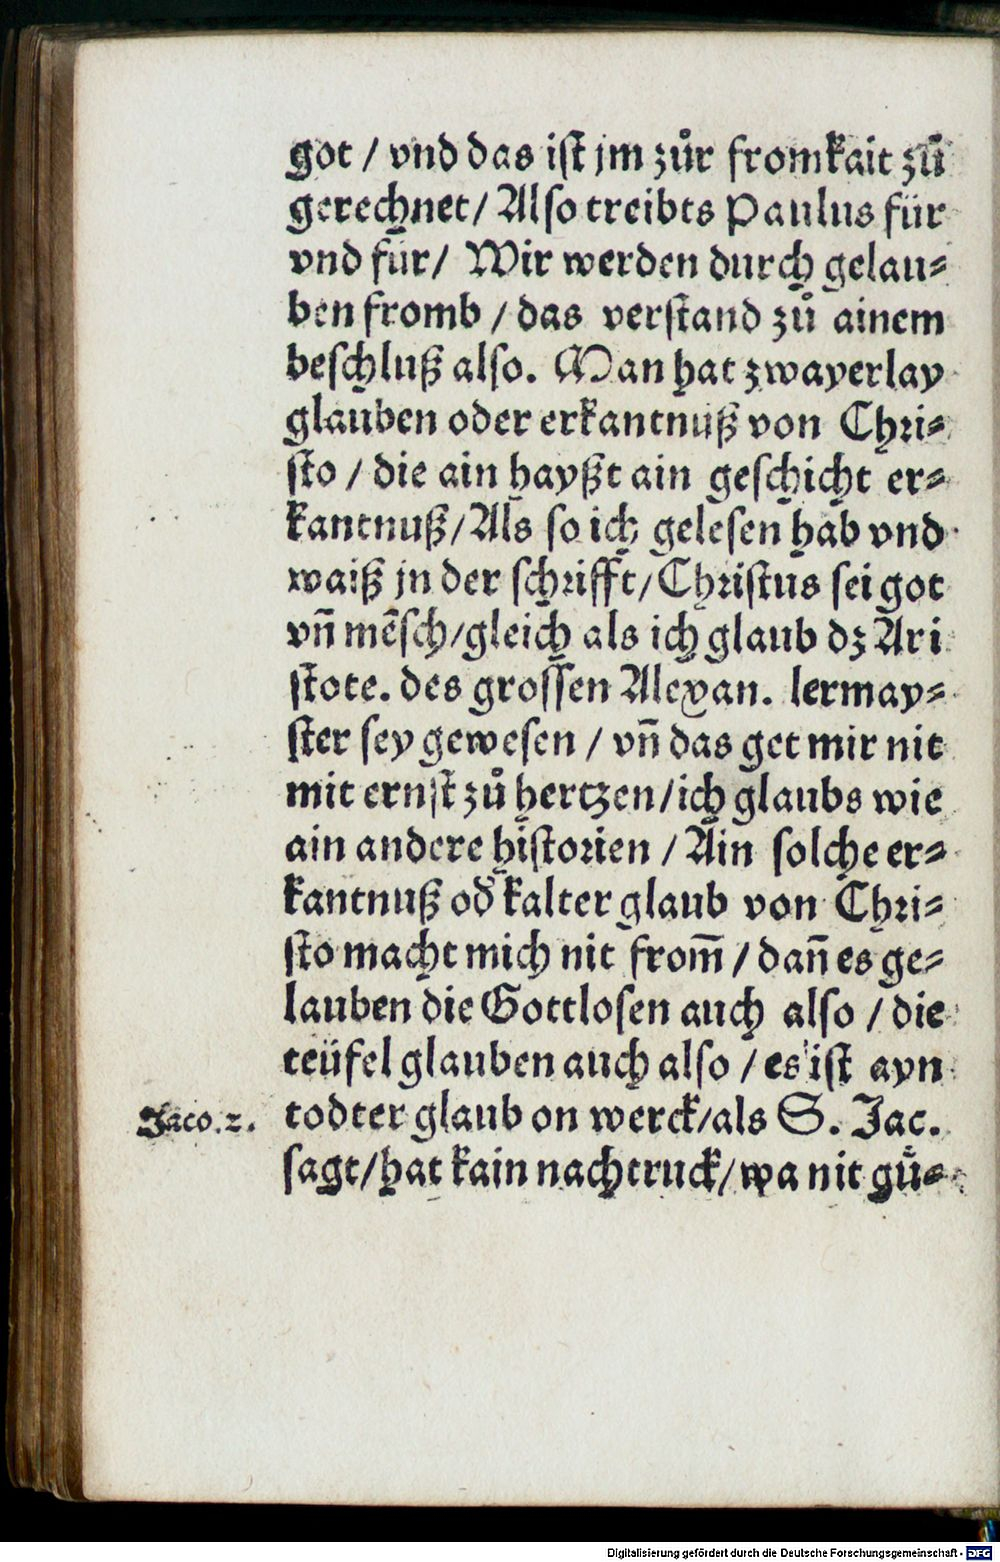 got / vnd das ist jm zůr fromkait zů
gerechnet / Also treibts Paulus für
vnd für / Wir werden durch gelau⸗
ben fromb / das verstand zů ainem
beschluß also. Man hat zwayerlay
glauben oder erkantnuß von Chri⸗
sto / die ain hayßt ain geschicht er⸗
kantnuß / Als so ich gelesen hab vnd
waiß jn der schrifft / Christus sei got
vñ mẽsch / gleich als ich glaub dz Ari
stote. des grossen Alexan. lermay⸗
ster sey gewesen / vñ das get mir nit
mit ernst zů hertzen / ich glaubs wie
ain andere historien / Ain solche er⸗
kantnuß oď kalter glaub von Chri⸗
sto macht mich nit from̃ / dañ es ge⸗
lauben die Gottlosen auch also / die
teüfel glauben auch also / es ist ayn
Jaco. 2. todter glaub on werck / als S. Jac.
sagt / hat kain nachtruck / wa nit gů⸗
Digitalisierung gefördert durch die Deutsche Forschungsgemeinschaft - DFG